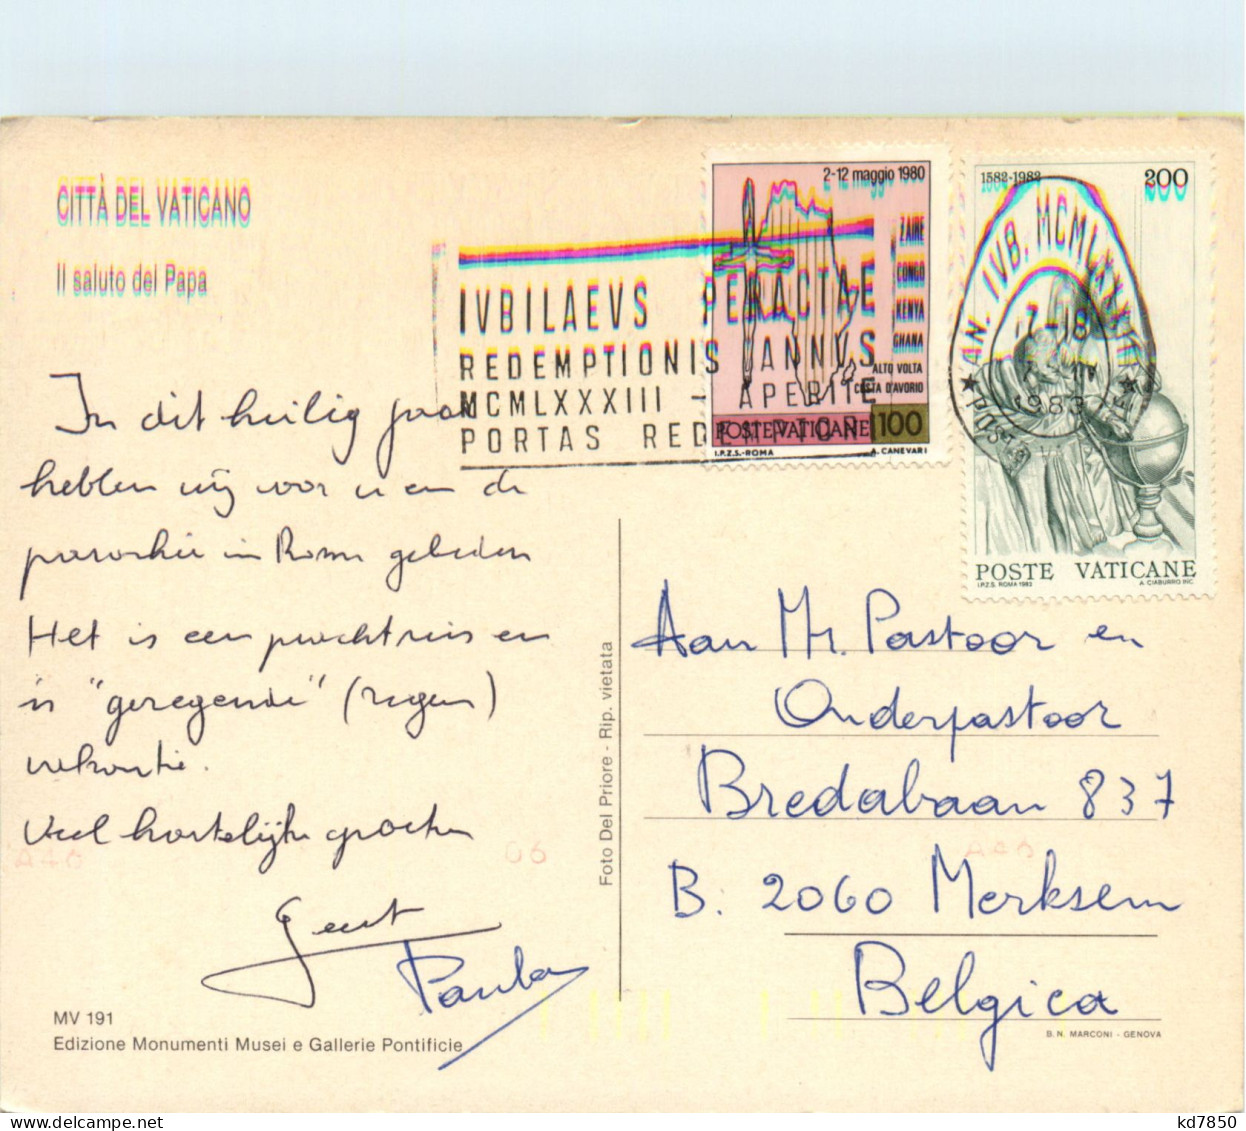 CITTÀ DEL VATICANO
Il saluto del Papa
In dit heilig jaar
hebben wij voor u en de
parochie in Rome gebeden
Het is een prachtreis en
'n "geregende" (regen)
vakantie.
Veel hartelijke groeten
Geert
Paula
MV 191
Edizione Monumenti Musei e Gallerie Pontificie
Foto Del Priore - Rip. vietata
IVBILAEVS PERACTAE
REDEMPTIONIS ANNVS
MCMLXXXIII - APERITE
PORTAS REDEMPTORI
2-12 maggio 1980
ZAIRE
CONGO
KENYA
GHANA
ALTO VOLTA
COSTA D'AVORIO
POSTE VATICANE 100
I.P.Z.S.-ROMA A. CANEVARI
1582-1982 200
AN. IVB. MCMLXXXIII
1983
POSTE VATICANE
I.P.Z.S. ROMA 1982 A. CIABURRO INC.
Aan Mr. Pastoor en
Onderpastoor
Bredabaan 837
B. 2060 Merksem
Belgica
B. N. MARCONI - GENOVA
A40 06 A40
kd7850